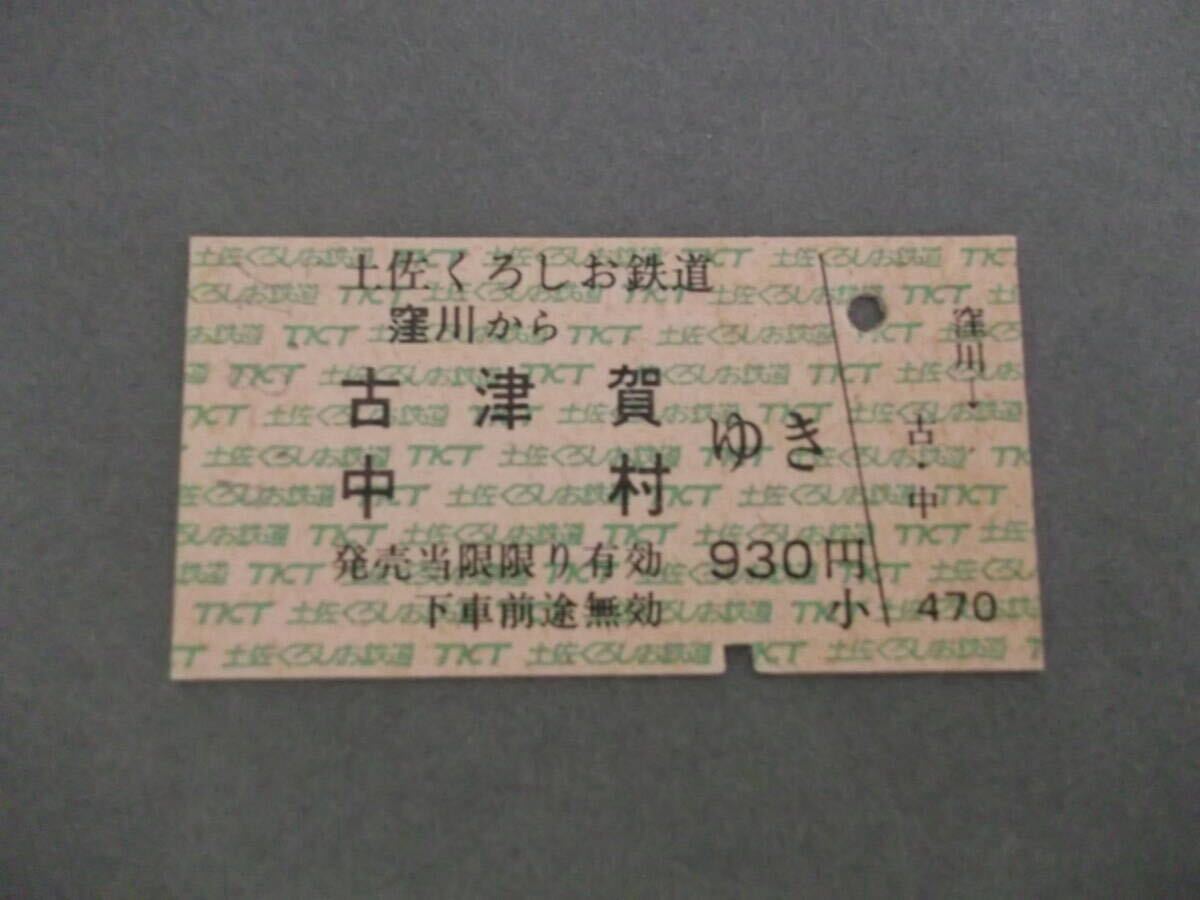 土佐くろしお鉄道
窪川から
古津賀
中村
ゆき
発売当限限り有効 930円
下車前途無効 小 470
窪川→
古・中